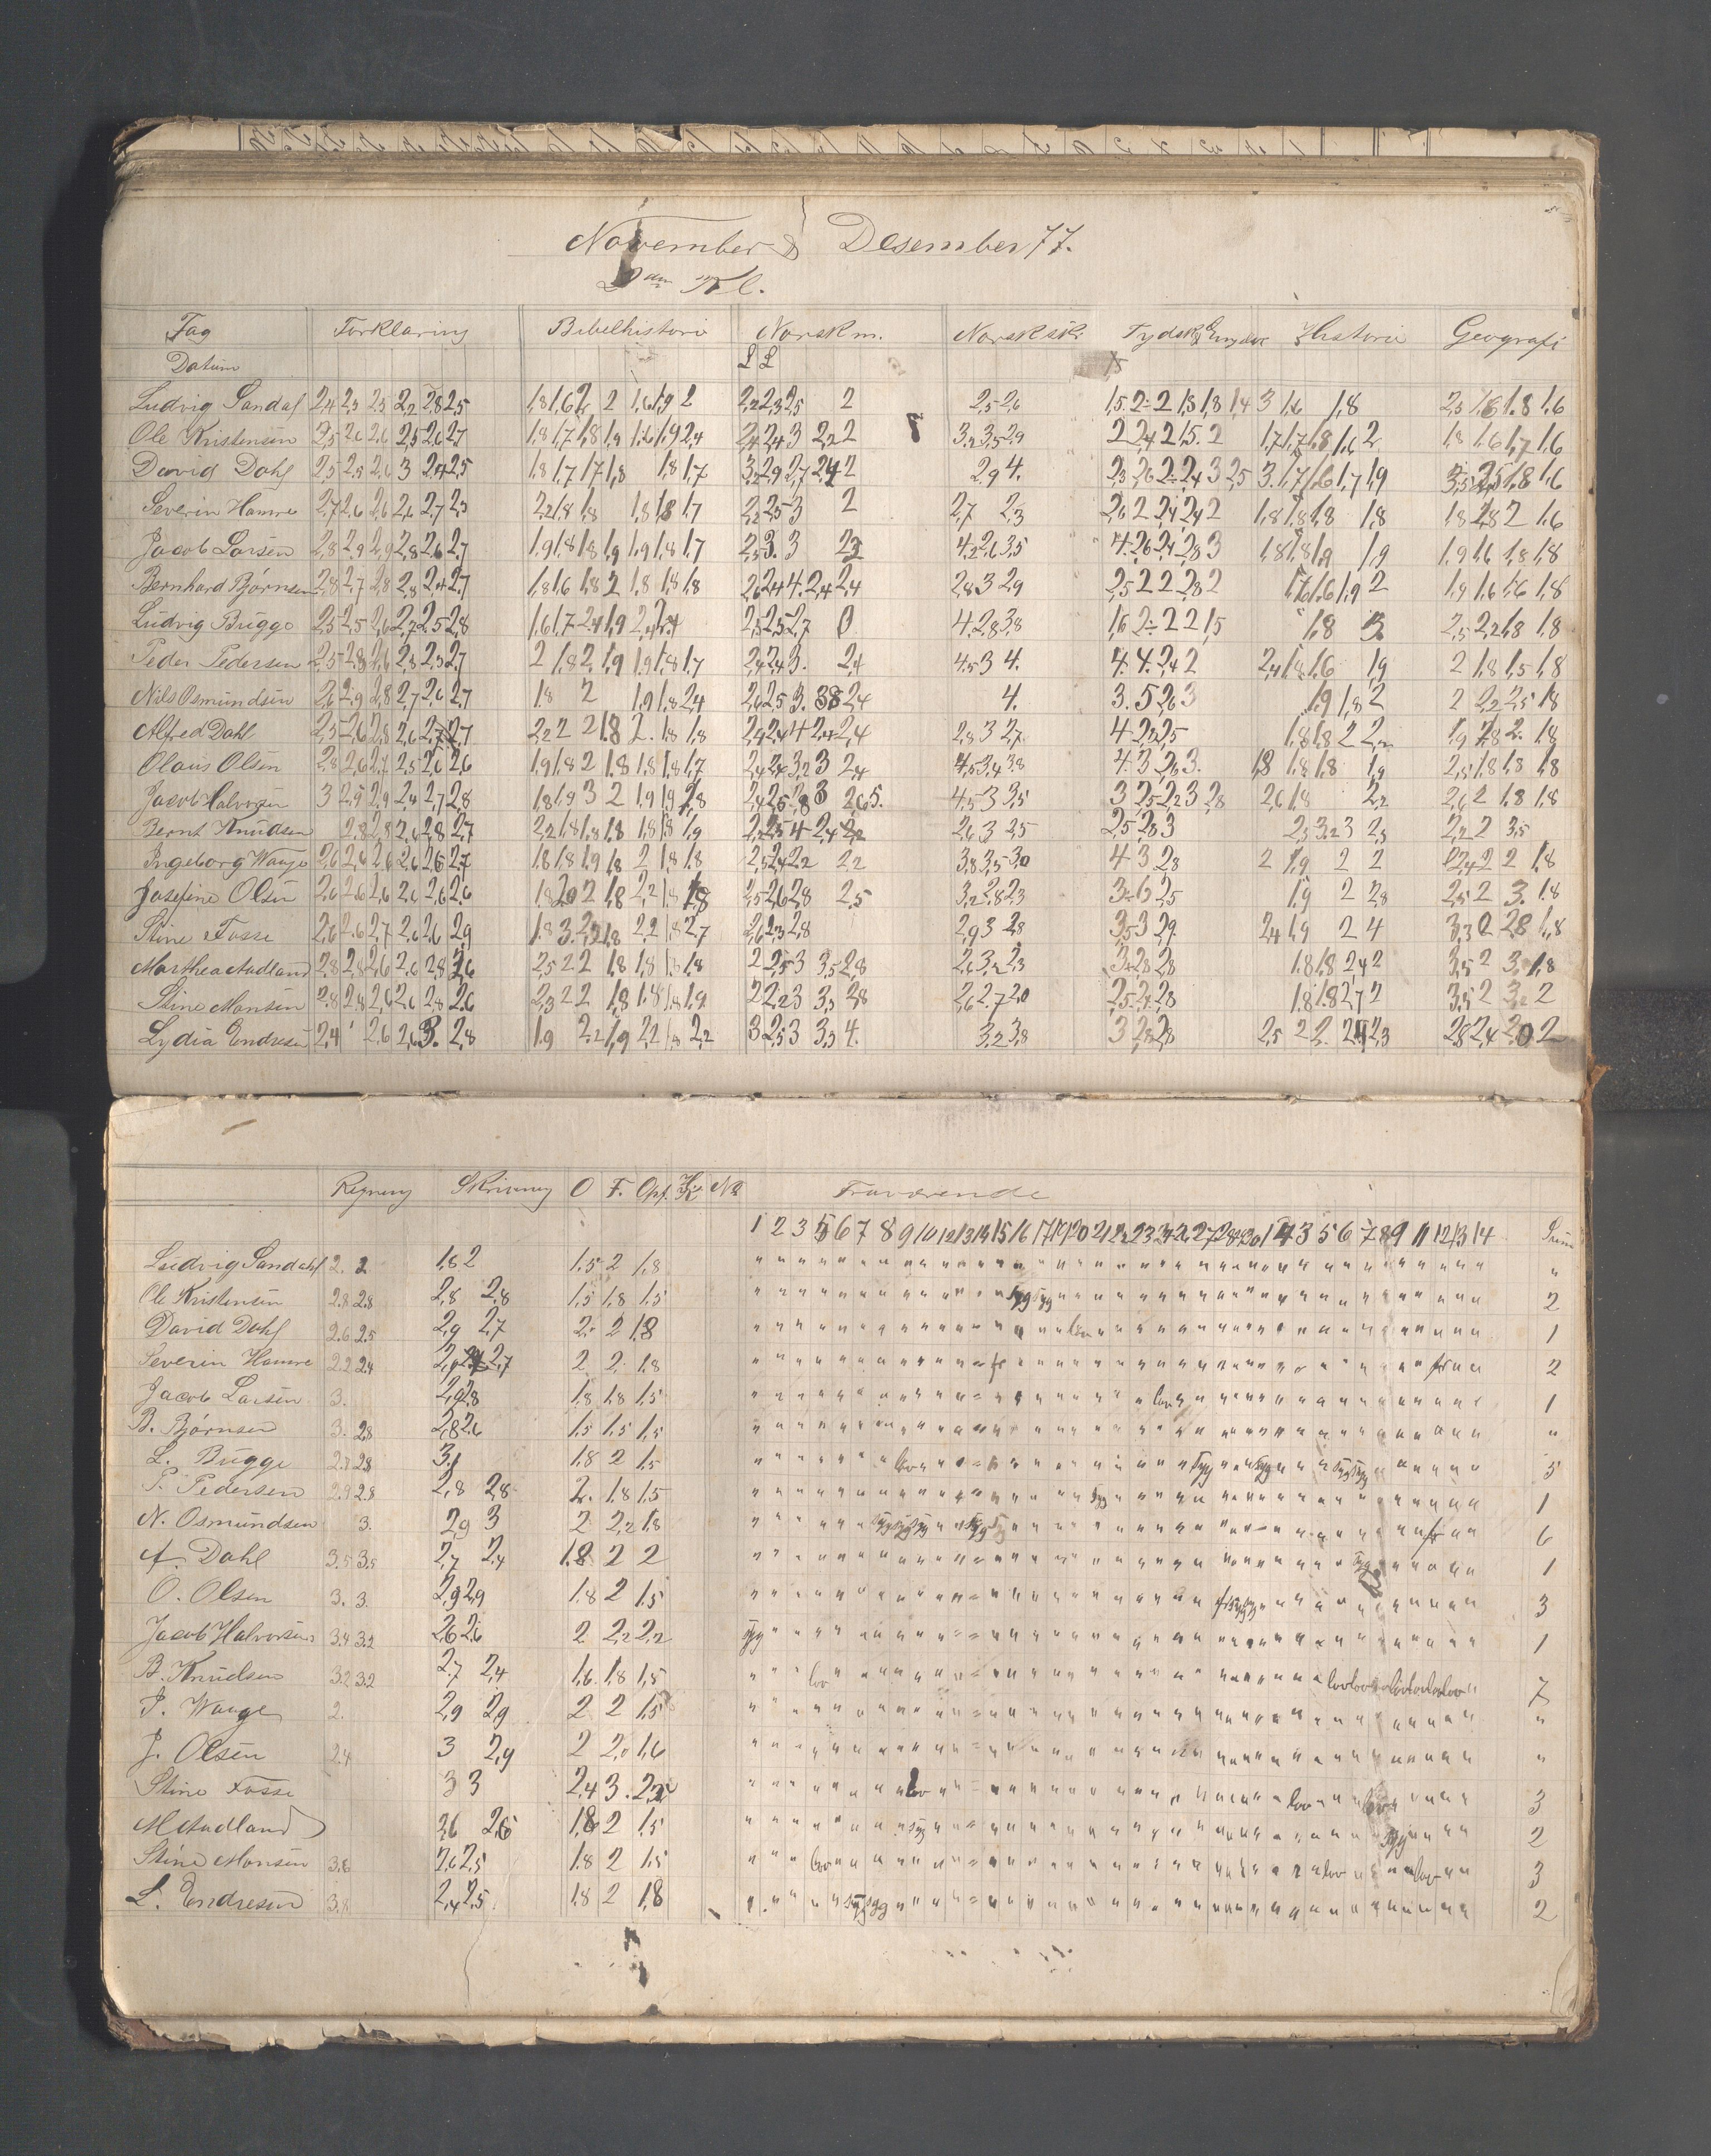 November & Desember 77.
2den Kl.
Fag Forklaring Bibelhistorie Norsk m. Norsk sk. Tydsk & Engelsk Historie Geografi
Datum L L
Ludvig Sandal 2,4 2,3 2,3 2,2 2,8 2,5 1,8 1,6 2 2 1,6 1,9 2 2,2 2,3 2,5 2 2,5 2,6 1,5. 2 2 1,8 1,8 1,4 3 1,6 1,8 2,3 1,8 1,8 1,6
Ole Kristensen 2,5 2,6 2,6 2,5 2,6 2,7 1,8 1,7 1,8 1,9 1,6 1,9 2,4 2,4 2,4 3 2,2 2 3,2 3,5 2,9 2 2,4 2 1,5. 2 1,7 1,7 1,8 1,6 2 1,8 1,6 1,7 1,6
David Dahl 2,5 2,8 2,6 3 2,4 2,5 1,8 1,7 1,7 1,8 1,8 1,7 3,2 2,9 2,7 2,4 2 2,9 4. 2,3 2,6 2 2,4 3 2,5 3. 1,7 1,6 1,7 1,9 3,5 2,5 1,8 1,6
Severin Hamre 2,7 2,6 2,6 2,6 2,7 2,3 2,2 1,8 1,8 1,8 1,8 1,7 2,2 2,5 3 2 2,7 2,3 2,6 2 2,4 2,4 2 1,8 1,8 1,8 1,8 1,8 2,8 2 1,6
Jacob Larsen 2,8 2,9 2,9 2,8 2,6 2,7 1,9 1,8 1,8 1,9 1,9 1,8 1,7 2,3 3. 3 2,3 4,2 2,6 3,5 4. 2,6 2,4 2,8 3 1,8 1,8 1,9 1,9 1,9 1,6 1,8 1,8
Bernhard Bjørnsen 2,8 2,7 2,8 2,8 2,4 2,7 1,8 1,6 1,8 2 1,8 1,8 1,8 2,6 2,4 4. 2,4 2,4 2,8 3 2,9 2,5 2 2 2,8 2 1,7 1,6 1,9 2 1,9 1,6 1,6 1,8
Ludvig Bugge 2,3 2,5 2,6 2,7 2,5 2,8 1,6 1,7 2,4 1,9 2,4 2,4 2,3 2,5 2,7 0 4. 2,8 3,8 1,6 2 2 2 1,5 1,8 3. 2,5 2,2 1,8 1,8
Peder Pedersen 2,5 2,8 2,6 2,8 2,3 2,7 2 1,8 2, 1,9 1,9 1,8 1,7 2,4 2,4 3. 2,4 4,5 3 4. 4. 4. 2,4 2 2,4 1,8 1,6 1,9 2 1,8 1,5 1,8
Nils Osmundsen 2,6 2,9 2,8 2,7 2,6 2,7 1,8 2 1,9 1,8 2,4 2,6 2,5 3. 3,8 2,4 4. 3. 5 2,6 3 1,9 1,8 2 2 2,2 2,5 1,8
Alfred Dahl 2,5 2,6 2,8 2,6 2,7 2,7 2,2 2 2 1,8 2. 1,8 1,8 2,4 2,4 4 2,4 2,4 2,8 3 2,7 4 2,2 2,5 1,8 1,8 2 2,2 1,9 2,8 2. 1,8
Olaus Olsen 2,8 2,6 2,7 2,5 2,6 2,6 1,9 1,8 2 1,8 1,8 1,8 1,7 2,4 2,4 3,2 3 2,4 4,5 3,4 3,8 4. 3 2,6 3. 1,8 1,8 1,8 1,9 2,5 1,8 1,8 1,8
Jacob Halvorsen 3 2,9 2,9 2,4 2,7 2,8 1,8 1,9 3 2 1,9 1,9 2,8 2,4 2,5 2,8 3 2,6 5. 4,5 3 3,5 3 2,5 2,2 3 2,8 2,6 1,8 2,2 2,6 2 1,8 1,8
Bernt Knudsen 2,8 2,8 2,6 2,8 2,7 2,2 1,8 1,8 1,8 1,8 1,8 1,9 2,2 2,5 4 2,4 2,2 2,6 3 2,5 2,5 2,8 3 2,3 3,2 3 2,3 2,2 2 3,5
Ingeborg Waage 2,6 2,6 2,6 2,6 2,6 2,7 1,8 1,8 1,9 1,8 2 1,8 1,8 2,3 2,4 2,2 2,2 3,8 3,5 3,0 4 3 2,8 2 1,9 2 2 2,4 2 2 1,8
Josefine Olsen 2,6 2,6 2,6 2,6 2,6 2,6 1,8 2,0 2 1,8 2,2 1,8 1,8 2,5 2,6 2,8 2,5 3,2 2,8 2,3 3 6 2,5 1,9 2 2,8 2,5 2 3. 1,8
Stine Fosse 2,6 2,6 2,7 2,6 2,6 2,9 1,8 3. 2,2 1,8 2,2 1,8 2,7 2,6 2,3 2,8 2,9 3 2,8 3,5 3 2,9 2,4 1,9 2 4 3,3 2 2,8 1,8
Marthea Aadland 2,8 2,8 2,6 2,6 2,8 2,6 2,5 2 2 1,8 1,8 1,8 1,8 2 2,5 3 3,5 2,8 2,6 3,2 2,3 3 2,8 2,8 1,8 1,8 2,4 2 3,5 2 3. 1,8
Stine Monsen 2,8 2,8 2,6 2,6 2,8 2,6 2,3 2 2 1,8 1,8 1,8 1,9 2 2,2 3 3,3 2,8 2,6 2,7 2,0 2,5 2,2 2,8 1,8 1,8 2,7 2 3,5 2 3,2 2
Lydia Endresen 2,4 2,6 2,6 3. 2,8 1,9 2,2 1,9 2,2 1,8 2,2 3 2,5 3 3,3 4. 3,2 3,8 3 2,8 2,8 2,5 2 2. 2,3 2,8 2,4 2,0 2
Regning Skrivning O F. Opf. No Fraværende
1 2 3 5 6 7 8 9 10 12 13 14 15 16 17 19 20 21 22 23 24 26 27 28 29 30 1 4 3 5 6 7 8 9 11 12 13 14 Sum
Ludvig Sandahl 2. 2 1,8 2 1,5 2 1,8 "
Ole Kristensen 2,8 2,8 2,8 2,8 1,5 1,8 1,5 syg syg 2
David Dahl 2,6 2,5 2,9 2,7 2. 2 1,8 lov 1
Severin Hamre 2,2 2,4 2,7 2 2 1,8 fr 2
Jacob Larsen 3. 2,9 2,8 1,8 1,8 1,5 lov 1
B. Bjørnsen 3. 2,8 2,8 2,6 1,5 1,5 1,5 "
L. Bugge 2,7 2,8 3,1 1,8 2 1,5 lov syg syg syg syg 5
P. Pedersen 2,9 2,8 2,8 2,8 2. 1,8 1,5 syg 1
N. Osmundsen 3. 2,9 3 2 2,2 1,8 syg syg syg syg fr 6
A. Dahl 3,5 3,5 2,7 2,4 1,8 2 2 syg 1
O. Olsen 3. 3. 2,9 2,9 1,8 2 1,5 fr syg syg 3
Jacob Halvorsen 3,4 3,2 2,6 2,6 2 2,2 2,2 syg 1
B. Knudsen 3,2 3,2 2,7 2,4 1,6 1,8 1,5 lov lov lov lov lov lov lov 7
I. Waage 2. 2,9 2,9 2 2 1,5 "
J. Olsen 2,4 3 2,9 2 2,0 1,6 "
Stine Fosse 3 3 2,4 3. 2,2 lov lov lov 3
M Aadland 2,6 2,6 1,8 2 1,5 syg syg 2
Stine Monsen 3,8 2,6 2,5 1,8 2 1,5 lov lov lov 3
L. Endresen 3,8 2,4 2,5 1,8 2 1,8 syg syg 2